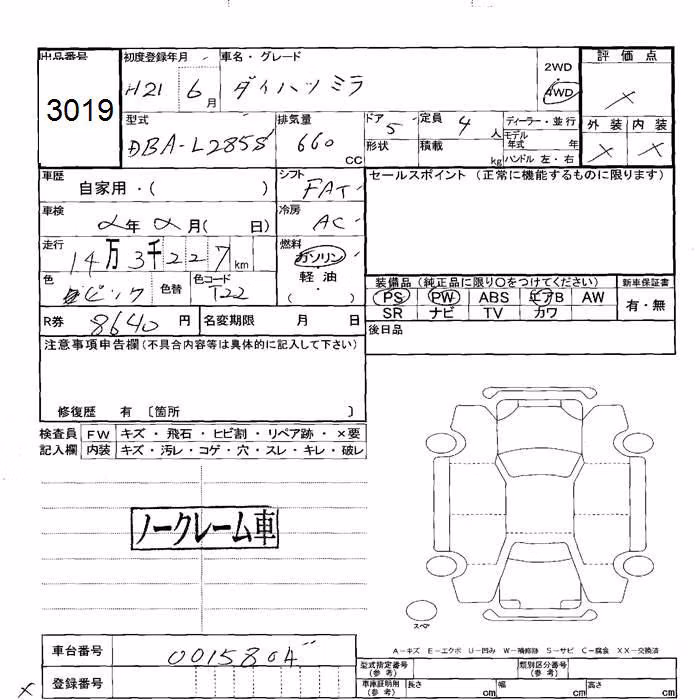 出品番号 初度登録年月 車名・グレード 2WD 評価点
3019 H21 6月 ダイハツミラ 4WD ×
型式 排気量 ドア 5 定員 4人 ディーラー・並行 外装 内装
DBA-L285S 660 CC 形状 積載 kg モデル年式 年 × ×
ハンドル 左・右
車歴 自家用・( ) シフト FAT セールスポイント (正常に機能するものに限ります)
車検 年 月( 日) 冷房 AC
走行 14万3千227km 燃料 ガソリン
軽油
( )
色 ピンク 色替 色コード T22
装備品 (純正品に限り○をつけてください) 新車保証書
PS PW ABS エアB AW 有・無
SR ナビ TV カワ
R券 8640円 名変期限 月 日 後日品
注意事項申告欄(不具合内容等は具体的に記入して下さい)
修復歴 有 〔箇所 〕
検査員 FW キズ・飛石・ヒビ割・リペア跡・×要
記入欄 内装 キズ・汚レ・コゲ・穴・スレ・キレ・破レ
ノークレーム車
スペア
A-キズ E-エクボ U-凹み W-補修跡 S-サビ C-腐食 XX-交換済
車台番号 0015804
型式指定番号(参考) 類別区分番号(参考)
× 登録番号
車庫証明用(参考) 長さ cm 幅 cm 高さ cm